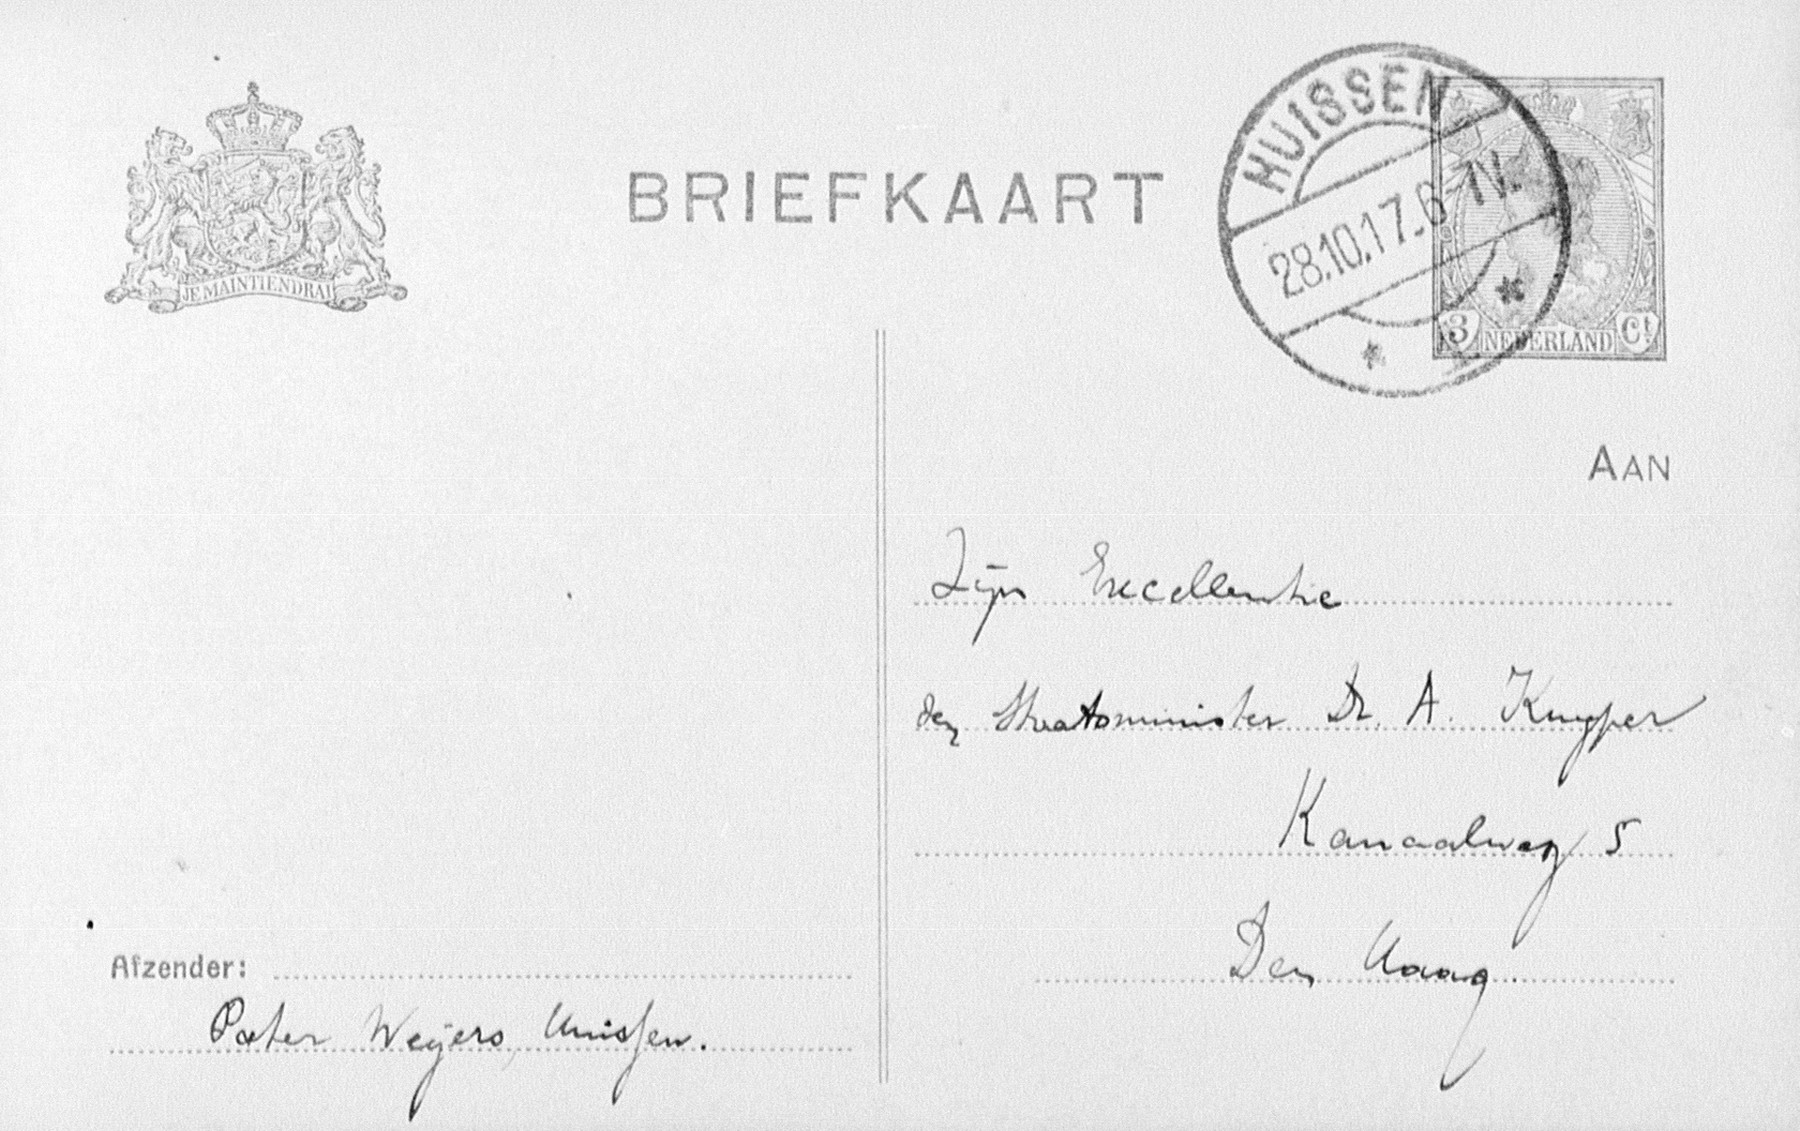 JE MAINTIENDRAI
BRIEFKAART
HUISSEN
28.10.17.6-7N.
3 NEDERLAND Ct
AAN
Zijn Excellentie
den Staatsminister Dr. A. Kuyper
Kanaalweg 5
Den Haag.
Afzender:
Pater Weijers, Huissen.